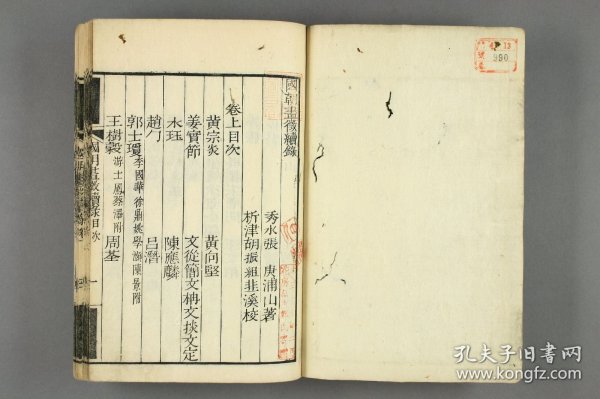 國朝畫徵續錄
秀水張 庚浦山著
析津胡振組韭溪校
卷上目次
黄宗炎 黄向堅
姜實節 文從簡文柟文掞文定
水珏 陳應麟
趙 呂潛
郭士瓊李國華徐鼎 陳景附
王樹榖游士鳳蔡澤附 周荃
國朝畫徵續錄目次
一
990
孔夫子旧书网
www.kongfz.com